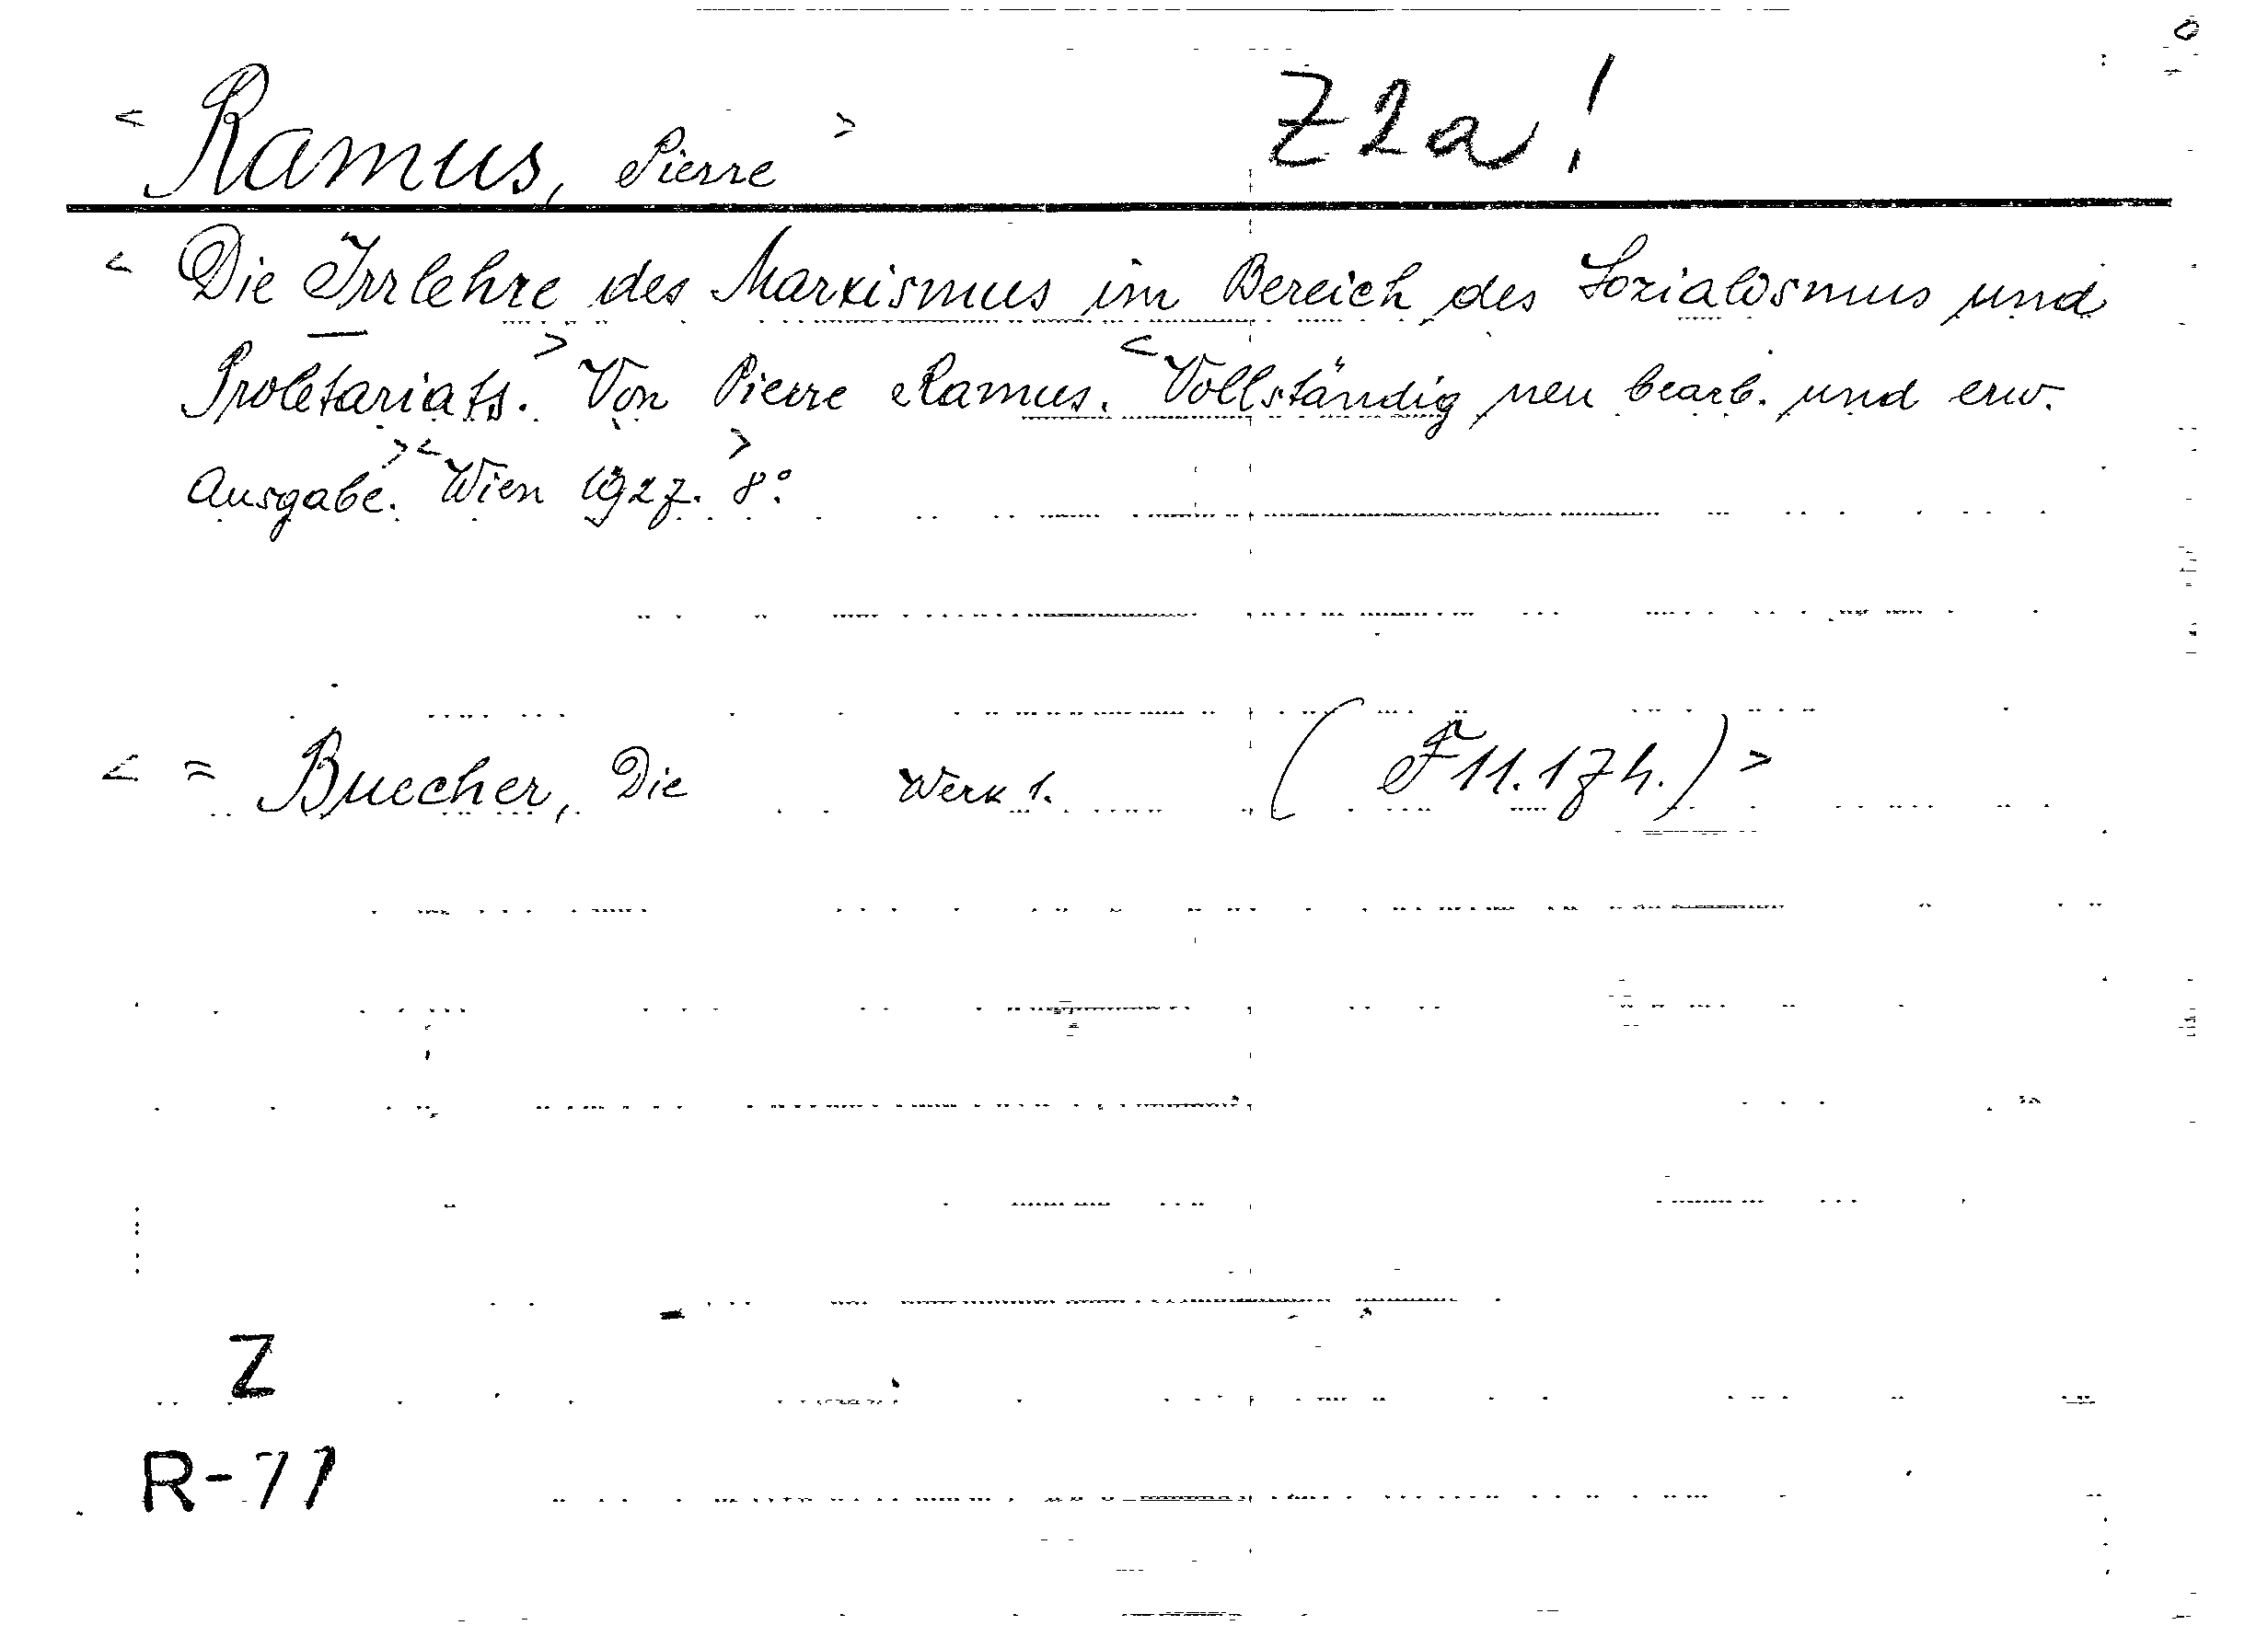 < Ramus, Pierre > Z2a!
< Die Irrlehre des Marxismus im Bereich des Sozialismus und
Proletariats. > Von Pierre Ramus. < Vollständig neu bearb. und erw.
Ausgabe. > < Wien 1927. > 8°.
< = Buecher, Die Werk 1. (F 11.174.) >
Z
R-71